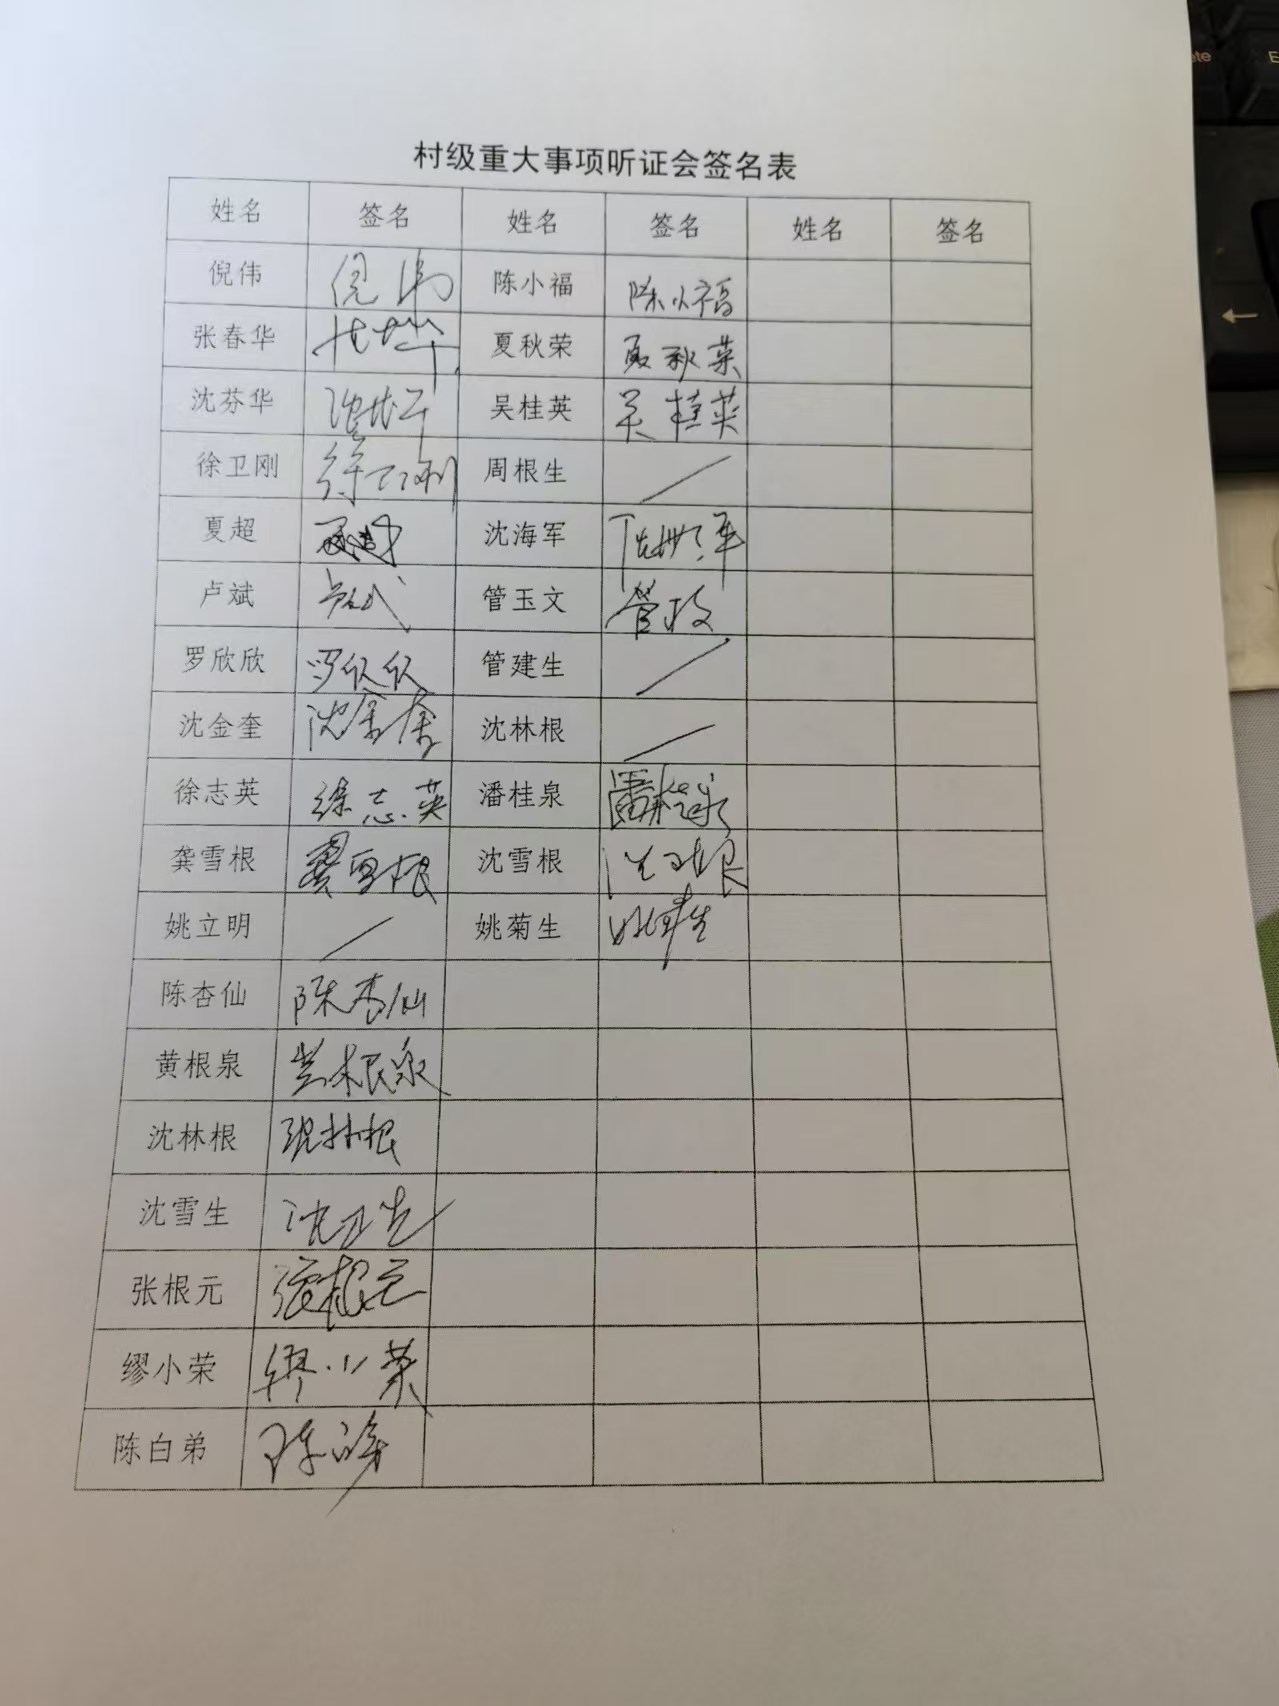 村级重大事项听证会签名表
姓名 签名 姓名 签名 姓名 签名
倪伟 倪伟 陈小福 陈小福
张春华 夏秋荣 夏秋荣
沈芬华 吴桂英 吴桂英
徐卫刚 徐卫刚 周根生
夏超 夏超 沈海军
卢斌 卢斌 管玉文
罗欣欣 罗欣欣 管建生
沈金奎 沈金奎 沈林根
徐志英 徐志英 潘桂泉 潘桂泉
龚雪根 龚雪根 沈雪根
姚立明 姚菊生
陈杏仙 陈杏仙
黄根泉 黄根泉
沈林根 沈林根
沈雪生
张根元 张根元
缪小荣 缪小荣
陈白弟